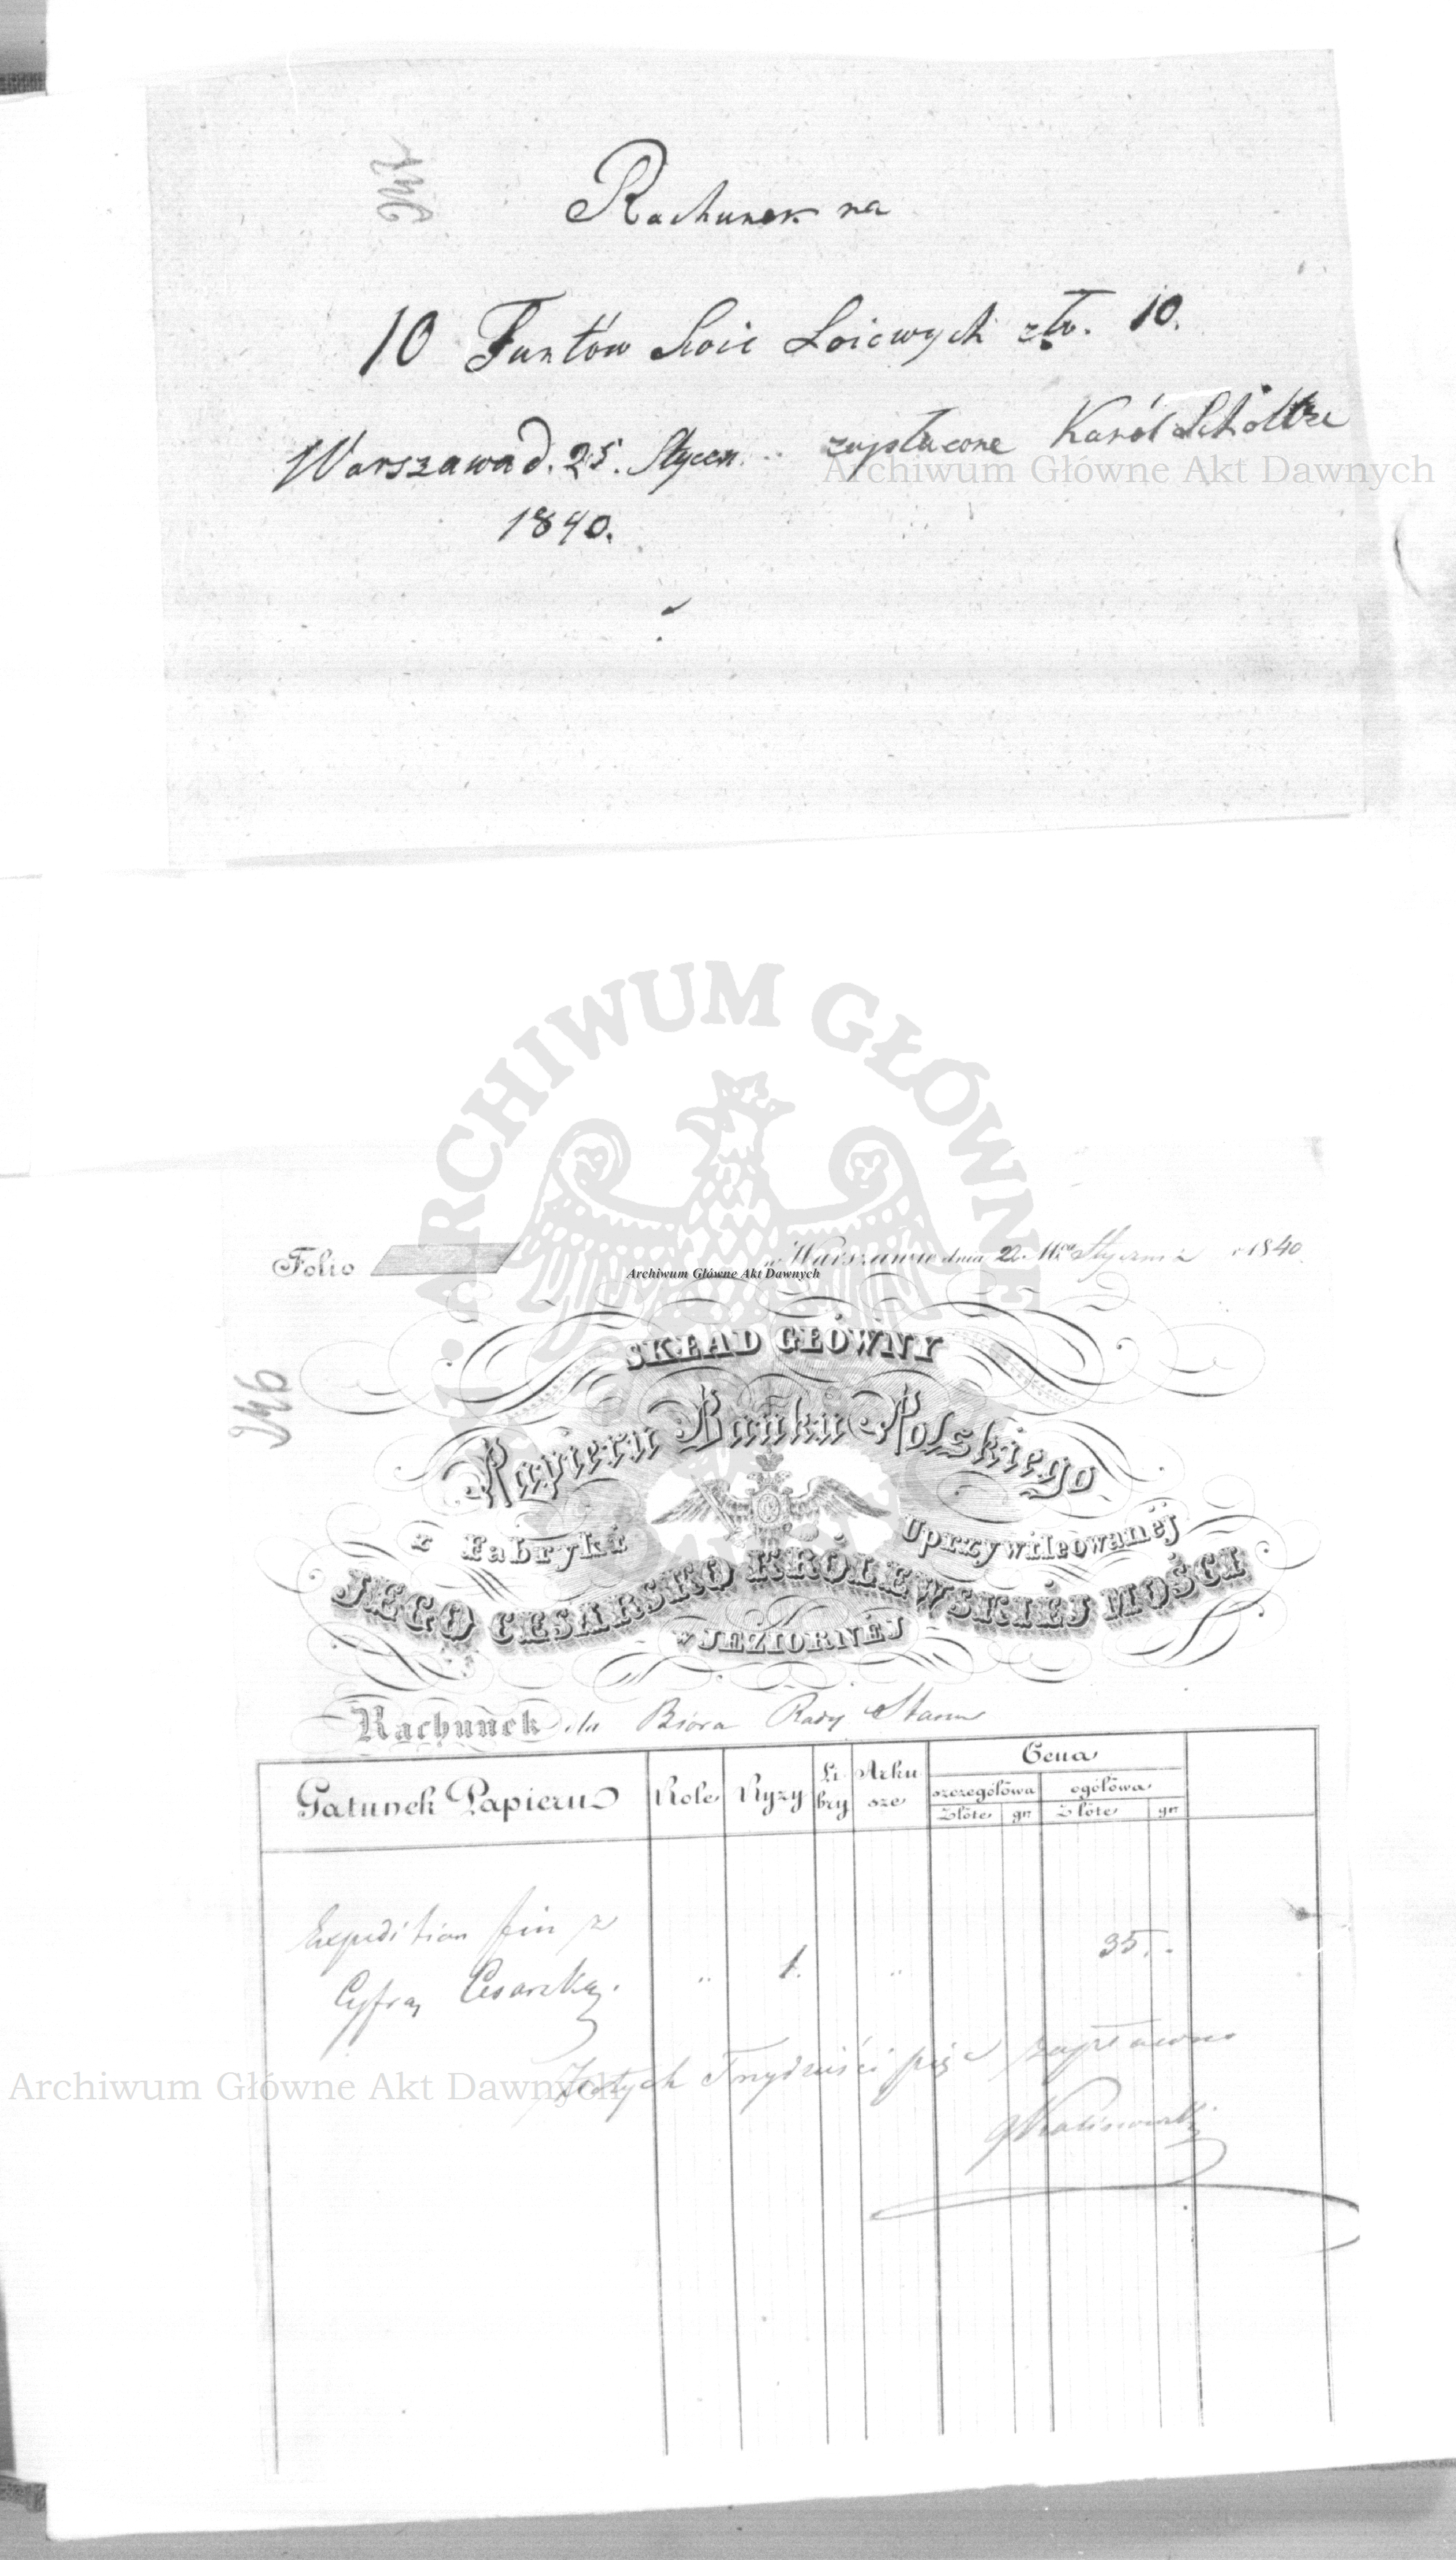 Rachunek na
10 Funtów Swic Loiowych złp. 10.
Warszawa d. 25. Stycz. zapłacone Karól
1840.
Archiwum Główne Akt Dawnych
ARCHIWUM GŁÓWNE
Folio w Warszawie dnia 22 Stycznia 1840.
Archiwum Główne Akt Dawnych
246
SKŁAD GŁÓWNY
Papieru Banku Polskiego
z Fabryki Uprzywileowanéj
JEGO CESARSKO KRÓLEWSKIÉJ MOŚCI
w JEZIORNÉJ
Rachunek dla Bióra Rady Stanu
Gatunek Papieru Role Ryzy Libry Arkusze Cena
szczegółowa ogółowa
Złote gr Złote gr
Expedition fin z
Cyfrą Cesarską. " 1. " 35. "
Złotych Trzydzieści pięć zapłacono
Kalinowski
Archiwum Główne Akt Dawnych